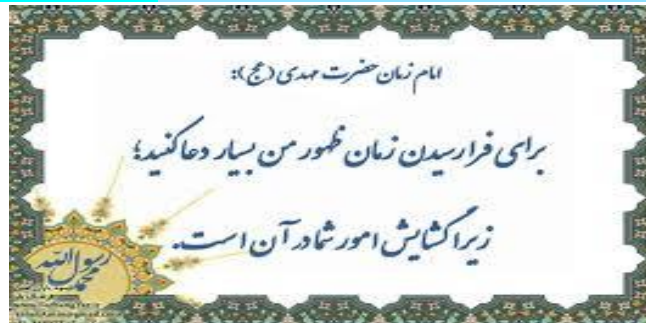 امام زمان حضرت مهدی (عج):
برای فرا رسیدن زمان ظهور من بسیار دعا کنید؛
زیرا گشایش امور شما در آن است.
محمد رسول الله